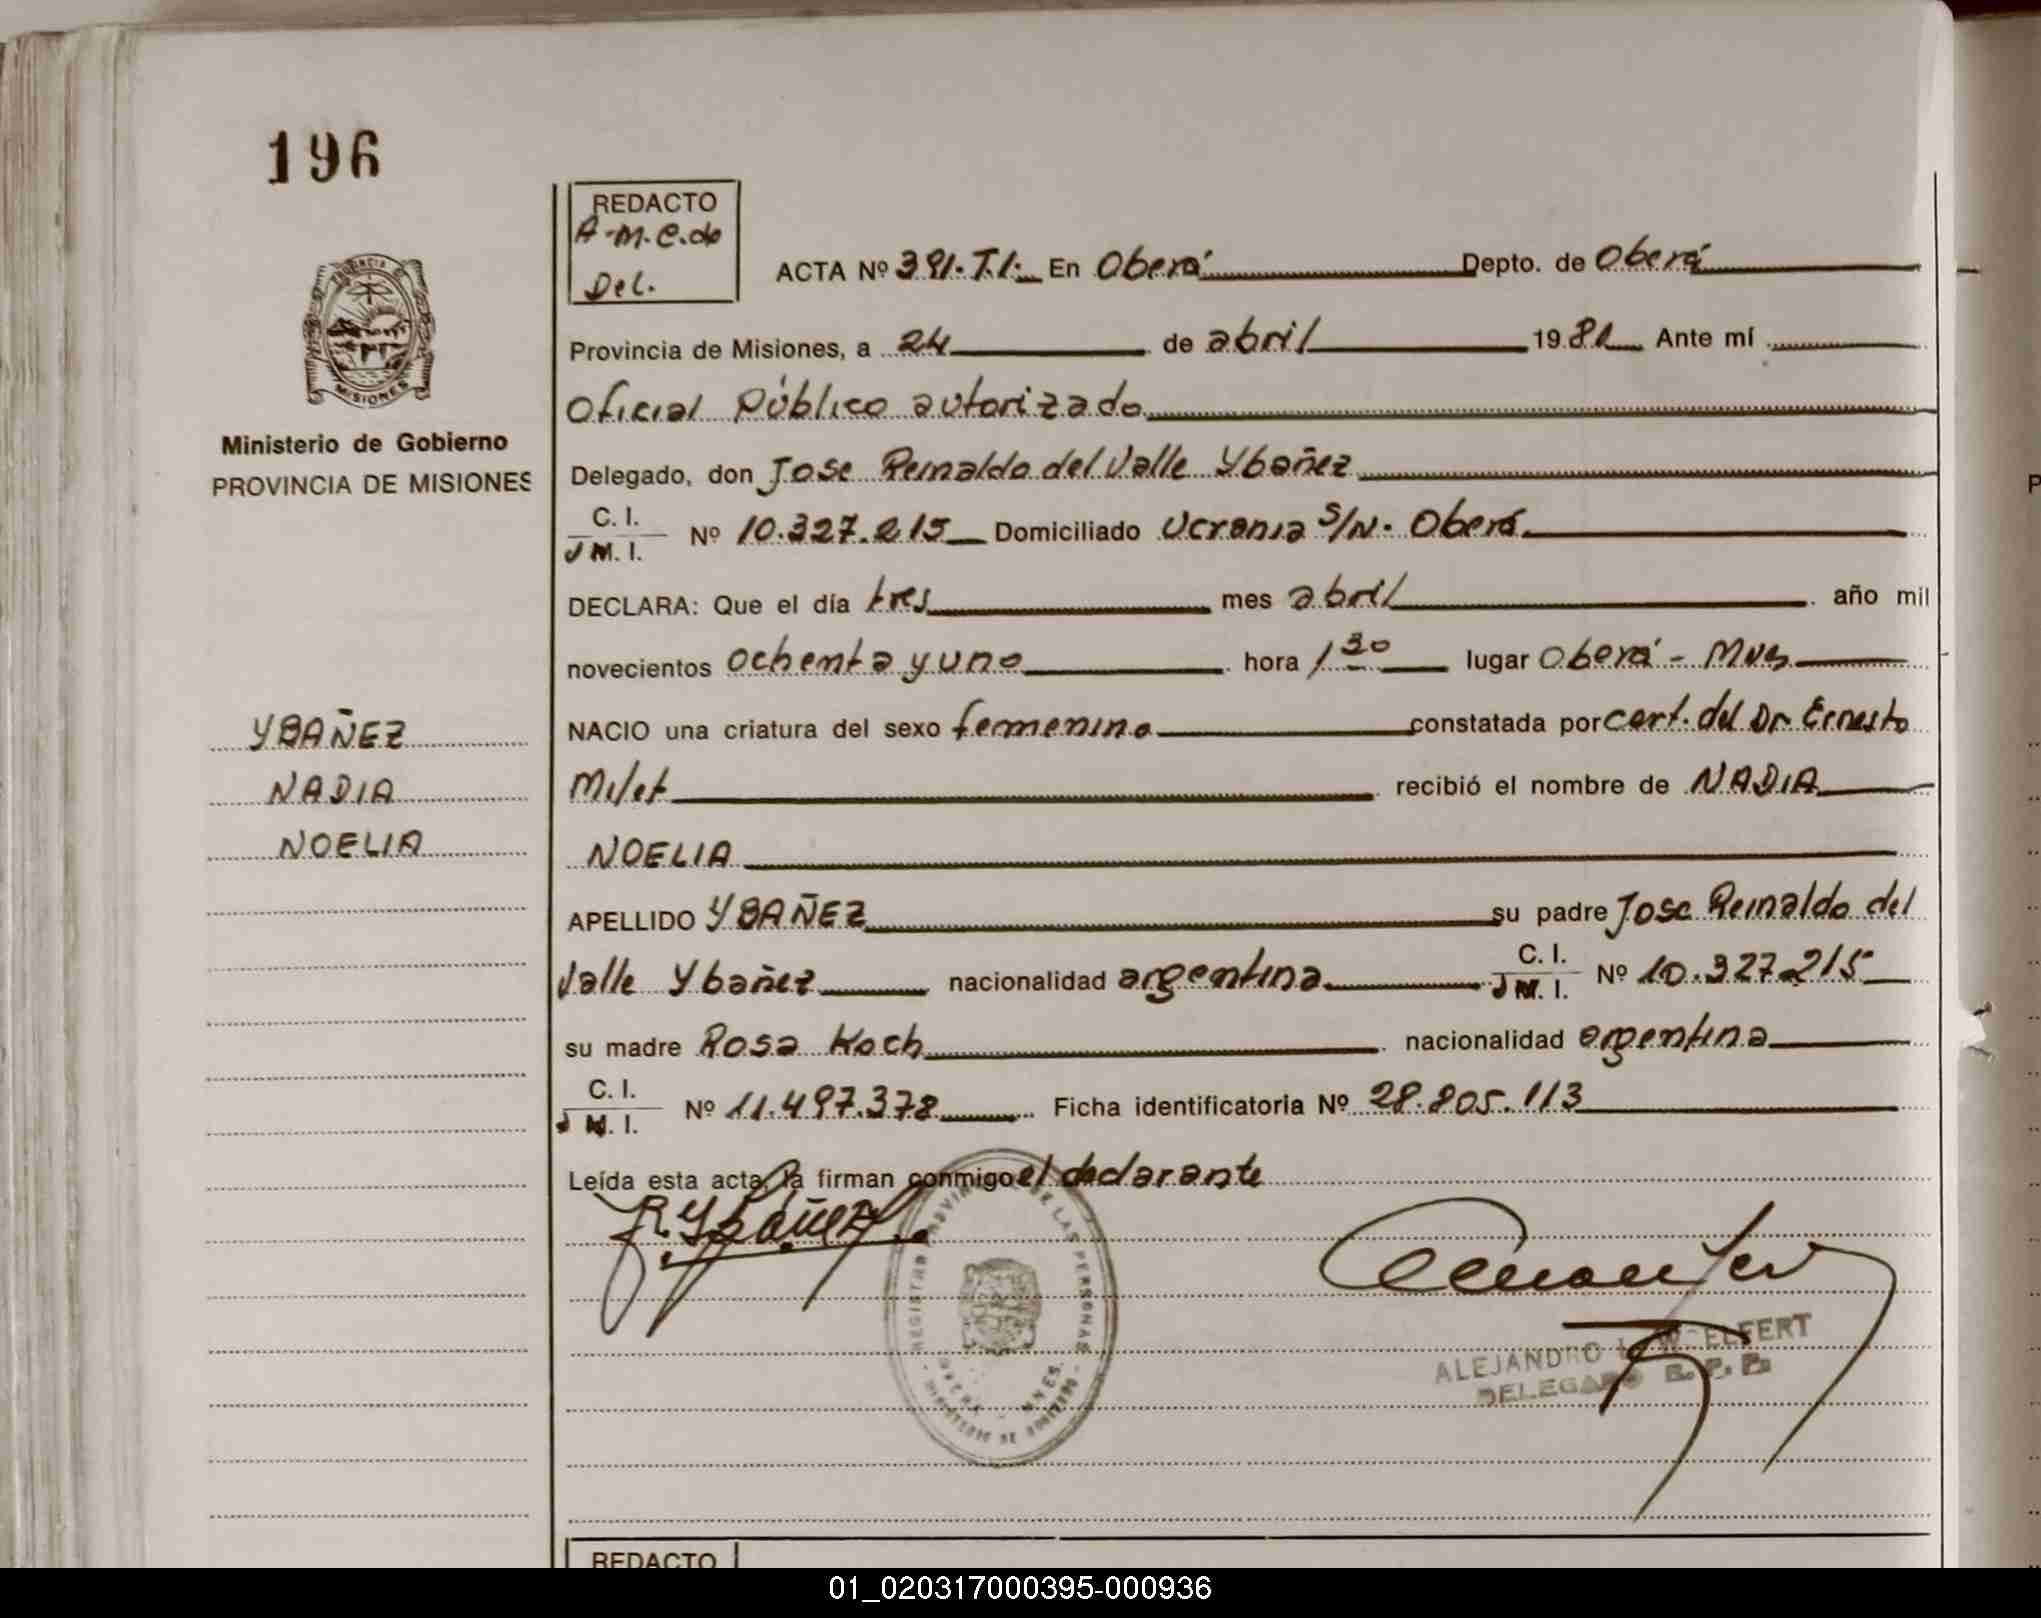 196
REDACTO
A-M.C.do
Del.
ACTA Nº 391. T.I. En Oberá Depto. de Oberá
Provincia de Misiones, a 24 de abril 1981 Ante mí
Oficial Público autorizado
Delegado, don Jose Reinaldo del Valle Ybañez
C. I.
M. I. Nº 10.327.215 Domiciliado Ucrania S/N. Oberá
DECLARA: Que el día tres mes abril año mil
novecientos ochenta y uno hora 1 30 lugar Oberá - Mnes
NACIO una criatura del sexo femenino constatada por cert. del Dr. Ernesto
Milet recibió el nombre de NADIA
NOELIA
APELLIDO YBAÑEZ su padre Jose Reinaldo del
Valle Ybañez nacionalidad argentina C. I.
M. I. Nº 10.327.215
su madre Rosa Koch nacionalidad argentina
C. I.
M. I. Nº 11.497.378 Ficha identificatoria Nº 28.805.113
Leída esta acta, la firman conmigo el declarante
R. Ybáñez
ALEJANDRO L. WOELFERT
DELEGADO
REGISTRO PROVINCIAL DE LAS PERSONAS
OBERA - MNES.
MINISTERIO DE GOBIERNO
Ministerio de Gobierno
PROVINCIA DE MISIONES
PROVINCIA
MISIONES
YBAÑEZ
NADIA
NOELIA
REDACTO
01_020317000395-000936